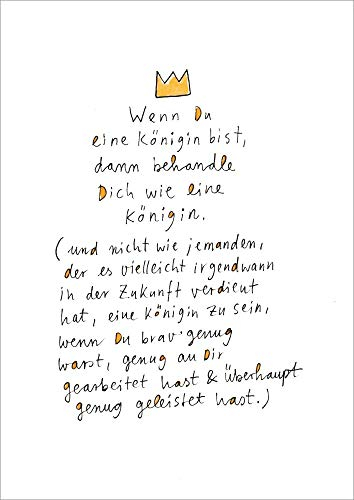 Wenn Du
eine Königin bist,
dann behandle
Dich wie eine
Königin.
(und nicht wie jemanden,
der es vielleicht irgendwann
in der Zukunft verdient
hat, eine Königin zu sein,
wenn Du brav genug
warst, genug an Dir
gearbeitet hast & überhaupt
genug geleistet hast.)